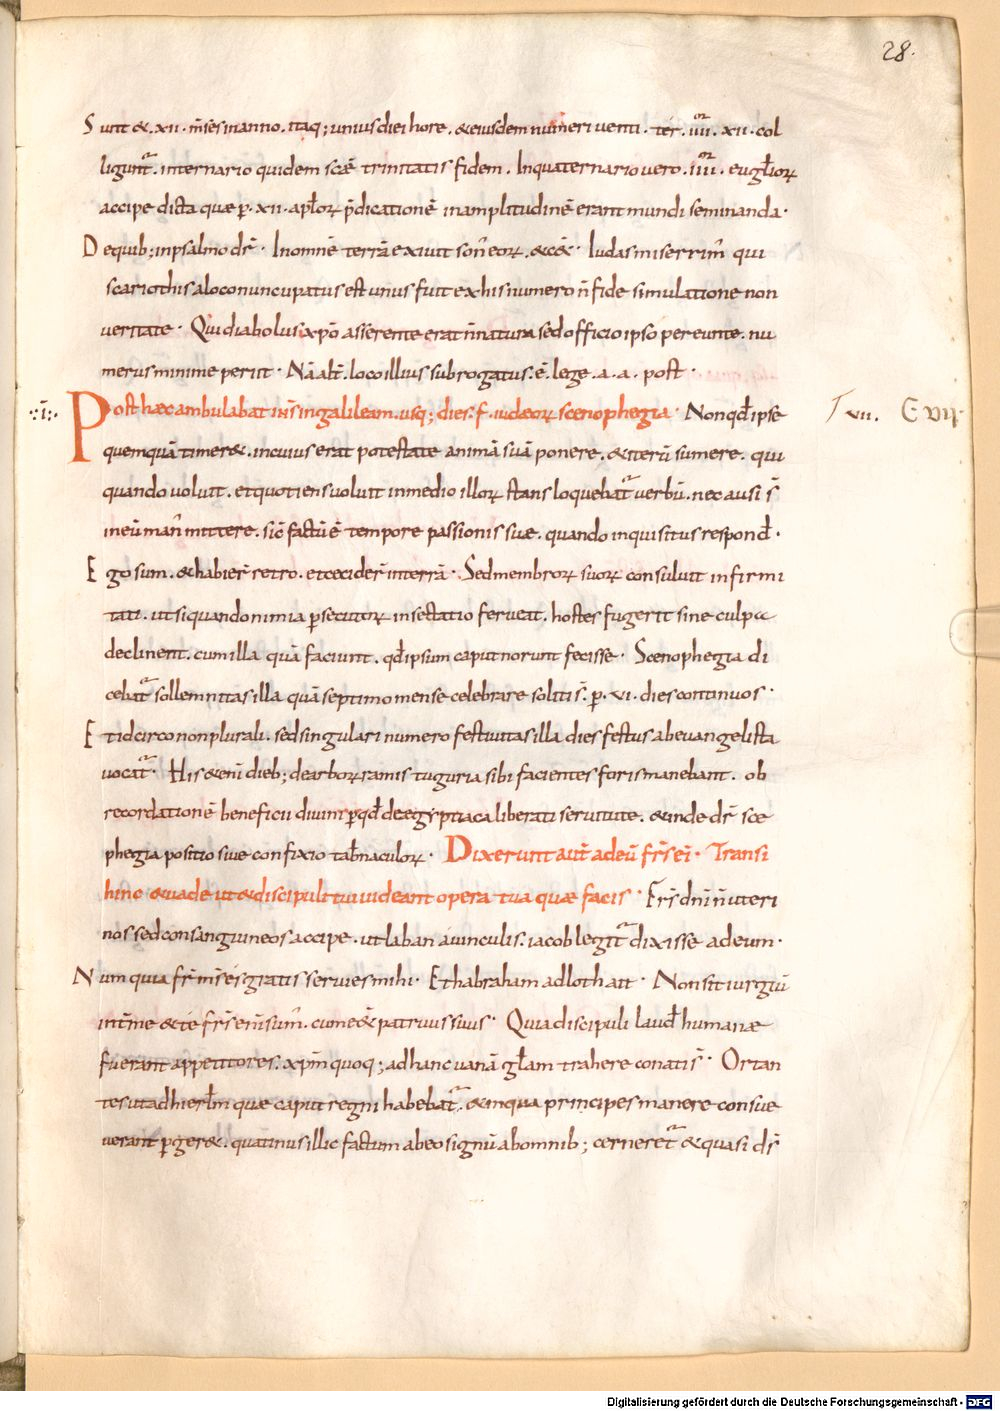 28.
Sunt &. xii. m̄ses in anno. itaq; unius diei hore. & eiusdem numeri venti. ter. iiii. xii. col
ligunt᷑. in ternario quidem scǣ trinitatis fidem. In quaternario vero. iiii. eugl̄ioꝝ
accipe dicta quæ ꝑ. xii. apl̄oꝝ p̄dicationē in amplitudinē erant mundi seminanda.
De quib; in psalmo dr̄. In omnē terrā exivit son̄ eoꝝ. & c&̄. Iudas miserrim̄ qui
scariothis a loco nuncupatus est unus fuit ex his numero n̄ fide simulatione non
veritate. Qui diabolus xp̄o asserente erat n̄ natura sed officio ipso pereunte. nu
merus minime periit. Nā alt̄. loco illius subrogatus. ē. lege. a. a. post.
Post hæc ambulabat ih̄s in galileam. usq; dies. f. iudeoꝝ scenophegia. Non qđ ipse
quemquā timer&. in cuius erat potestate animā suā ponere. & iterū sumere. qui
quando voluit. et quotiens voluit in medio illoꝝ stans loquebat᷑ verbū. nec ausi s̄
in eū man̄ mittere. sic̄ factū ē tempore passionis suæ. quando inquisitus respond̄.
Ego sum. & habier̄ retro. et cecider̄ in terrā. Sed membroꝝ suoꝝ consuluit infirmi
tati. ut siquando nimia ꝑsecutoꝝ insectatio ferveat. hostes fugerit sine culpa
declinent. cum illa quā faciunt. qđ ipsum caput norunt fecisse. Scenophegia di
cebat᷑ sollemnitas illa quā septimo mense celebrare soliti s̄. ꝑ. vi. dies continuos.
Et idcirco non plurali. sed singulari numero festivitas illa dies festus ab evangelista
vocat᷑. His & enī dieb; de arboꝝ ramis tuguria sibi facientes foris manebant. ob
recordationē beneficii divini ꝑ qđ de ægyptiaca liberati servitute. & inde dr̄ sce
phegia positio sive confixio tab̄naculoꝝ. Dixerunt aut̄ ad eū fr̄s ei. Transi
hinc & vade ut & discipuli tui videant opera tua quæ facis. Fr̄s dn̄i n̄ uteri
nos sed consanguineos accipe. ut laban avunculis. iacob legit᷑ dixisse ad eum.
Num quia fr̄ m̄s eis gratis servies mihi. Et habraham ad loth ait. Non sit iurgiū
int̄ me & te fr̄s eni sum̄. cum e&̄ patruus suus. Quia discipuli laud̄ humanæ
fuerant appetitores. xp̄m quoq; ad hanc vanā gl̄am trahere conati s̄. Ortan
tes ut ad hierl̄m quæ caput regni habebat᷑. & in qua principes manere consue
verant ꝑger&. quatinus illic factum ab eo signū ab omnib; cerneret᷑ & quasi dr̄
.:i:.
T vii. C vii.
Digitalisierung gefördert durch die Deutsche Forschungsgemeinschaft - DFG